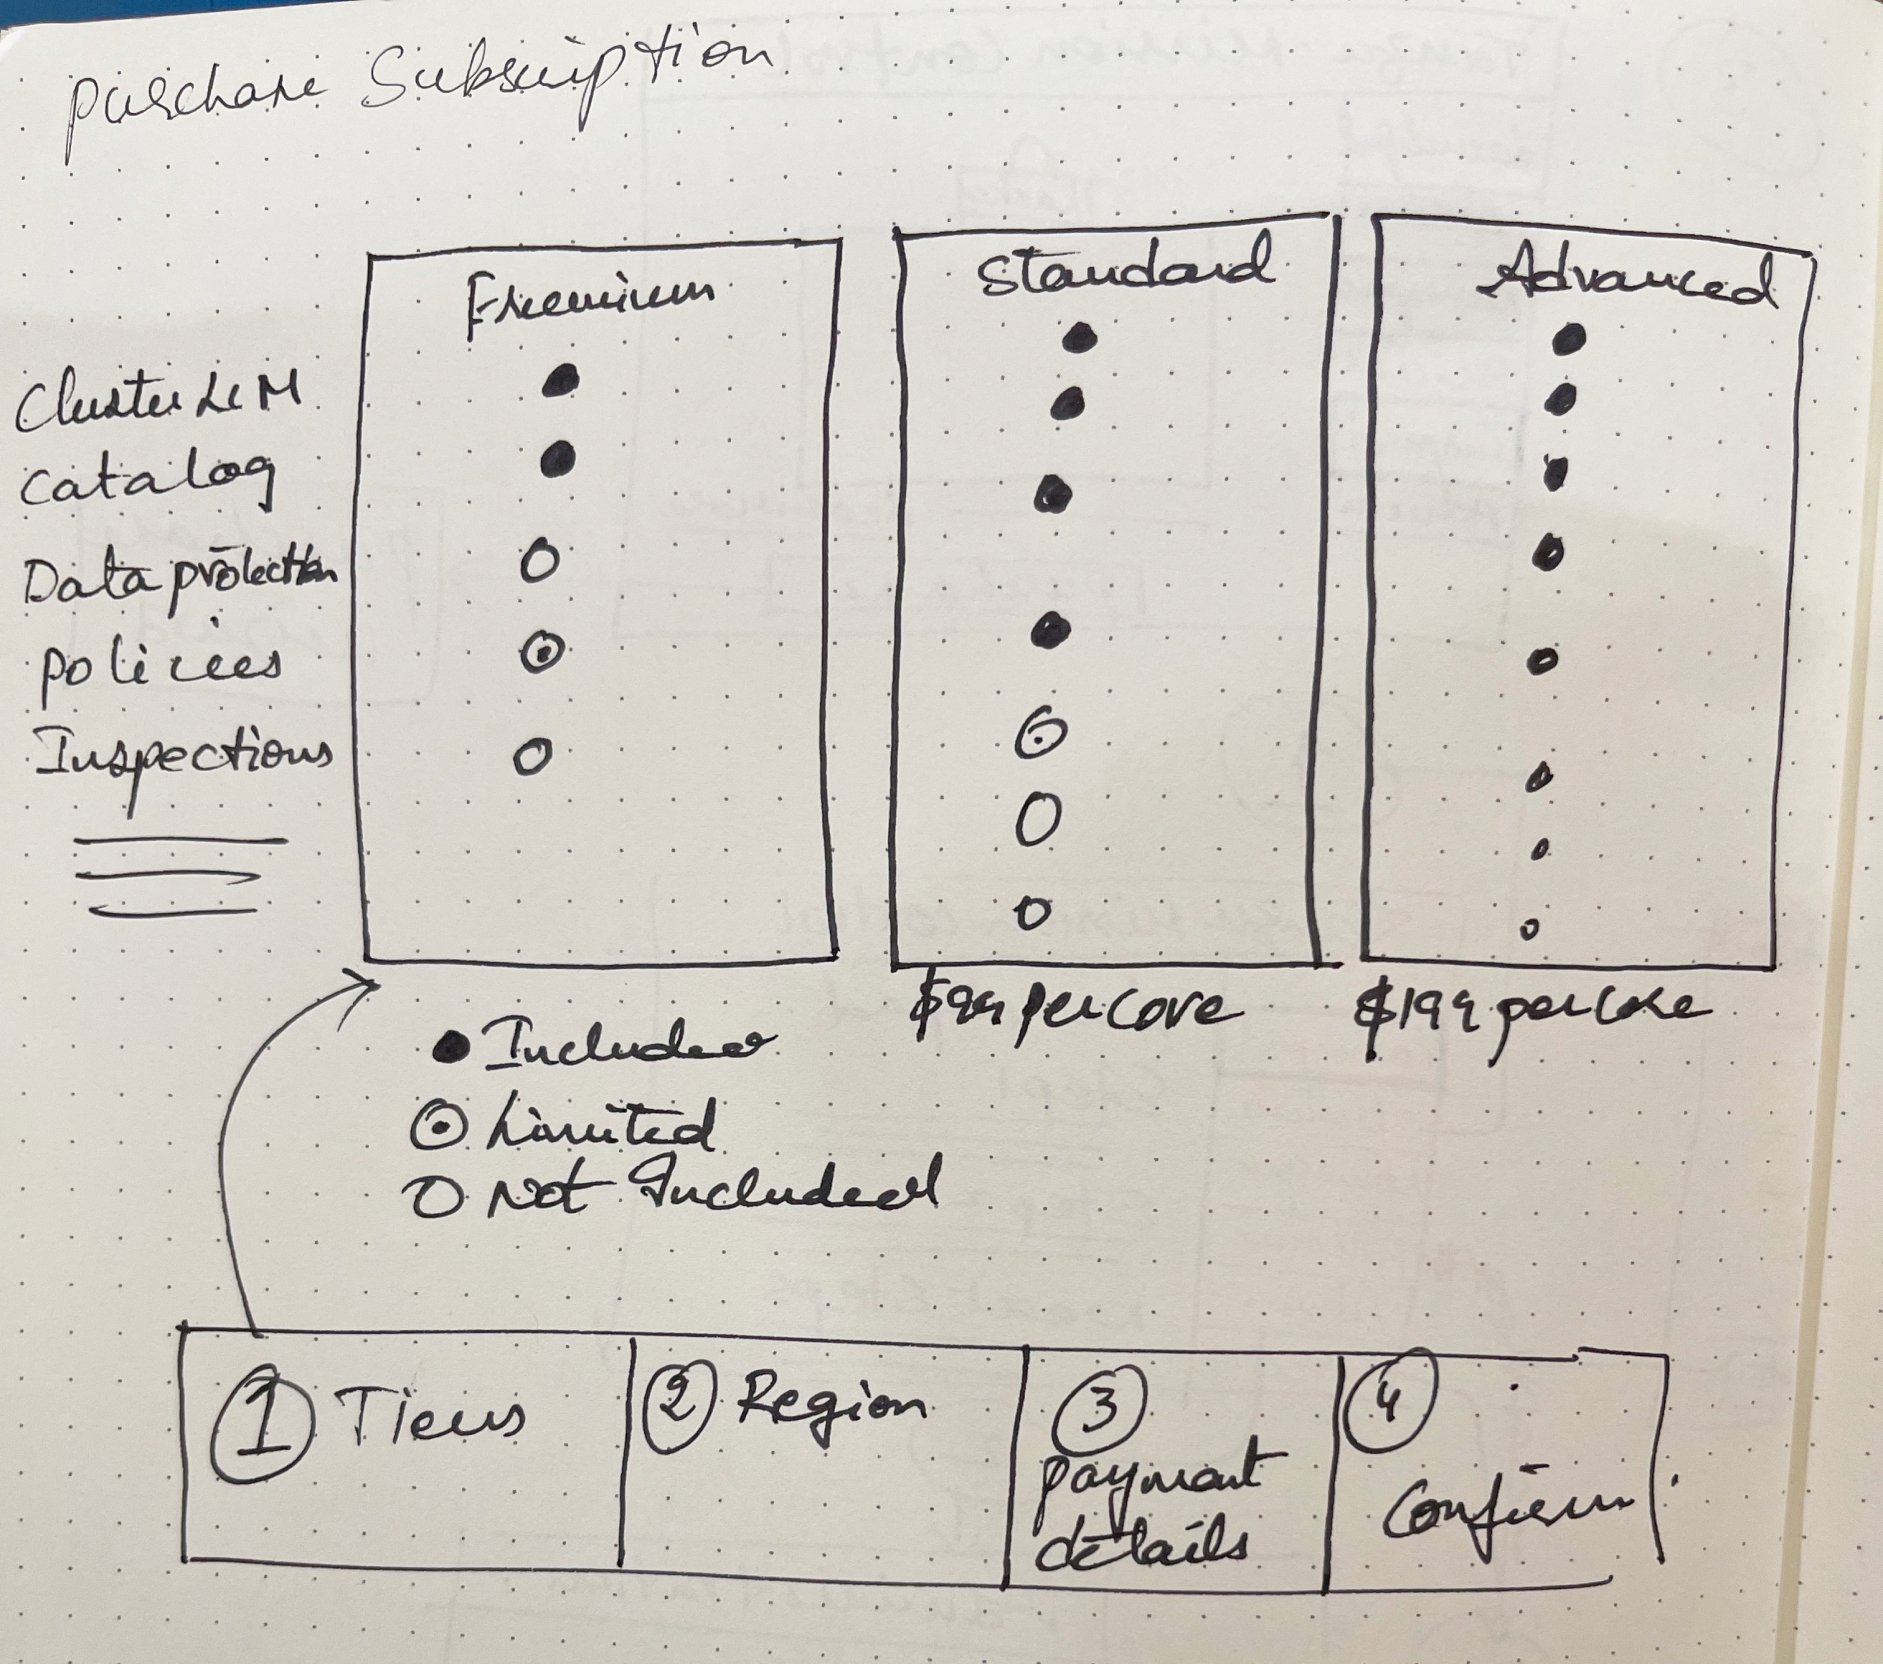 Purchase Subscription
Freemium
Standard
Advanced
Cluster LCM
Catalog
Data protection
Policies
Inspections
$99 per core
$199 per core
Included
Limited
Not Included
1 Tiers
2 Region
3
payment
details
4
Confirm